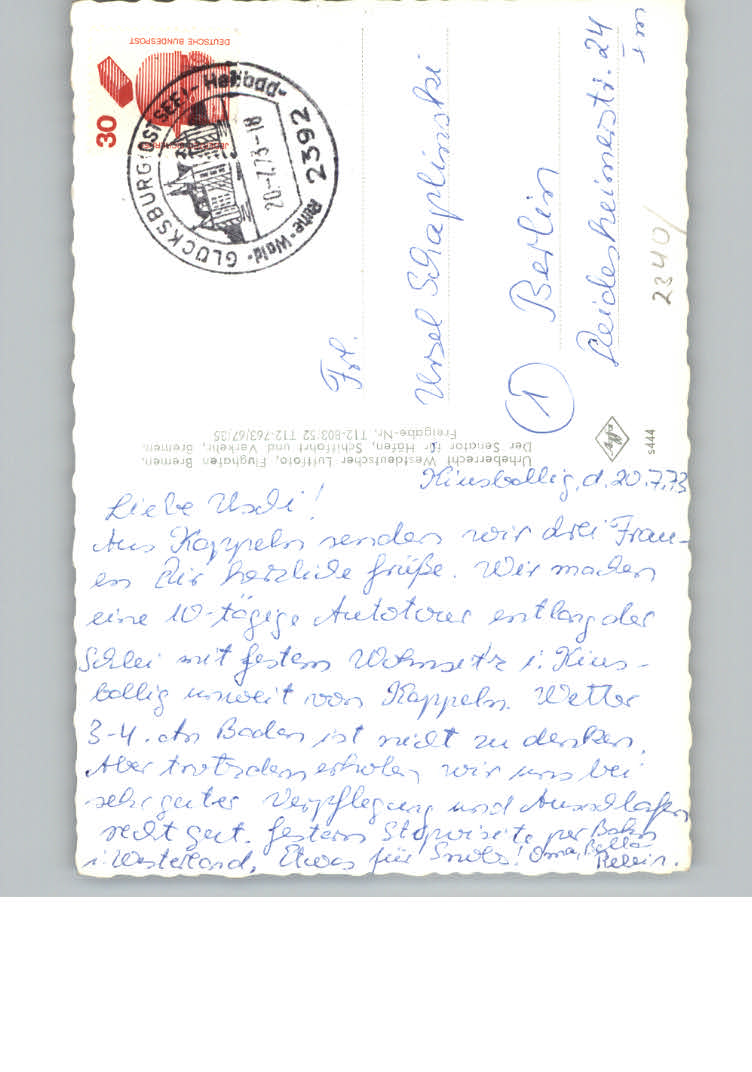 DEUTSCHE BUNDESPOST
30
GLÜCKSBURG (OSTSEE) - Heilbad -
2392
20.-7.73-18
Ruhe · Wald ·
Frl.
Ursel Schaplinski
1 Berlin
Deidesheimerstr. 24
2340/
Urheberrecht Westdeutscher Luftfoto, Flughafen Bremen.
Der Senator für Häfen, Schiffahrt und Verkehr, Bremen.
Freigabe-Nr. T12-803/52 T12-763/67/35
s444
d. 20.7.73
Liebe Uschi!
Aus Kappeln senden wir drei Frau-
en Dir herzliche Grüße. Wir machen
eine 10-tägige Autotour entlang der
Schlei mit festem Wohnsitz i. Kius-
ballig unweit von Kappeln. Wetter
3-4. An Baden ist nicht zu denken.
Aber trotzdem erholen wir uns bei
sehr guter Verpflegung und Ausschlafen
recht gut. Gestern Stopvisite per Bahn
i. Westerland. Etwas für Snobs! Oma, Bella